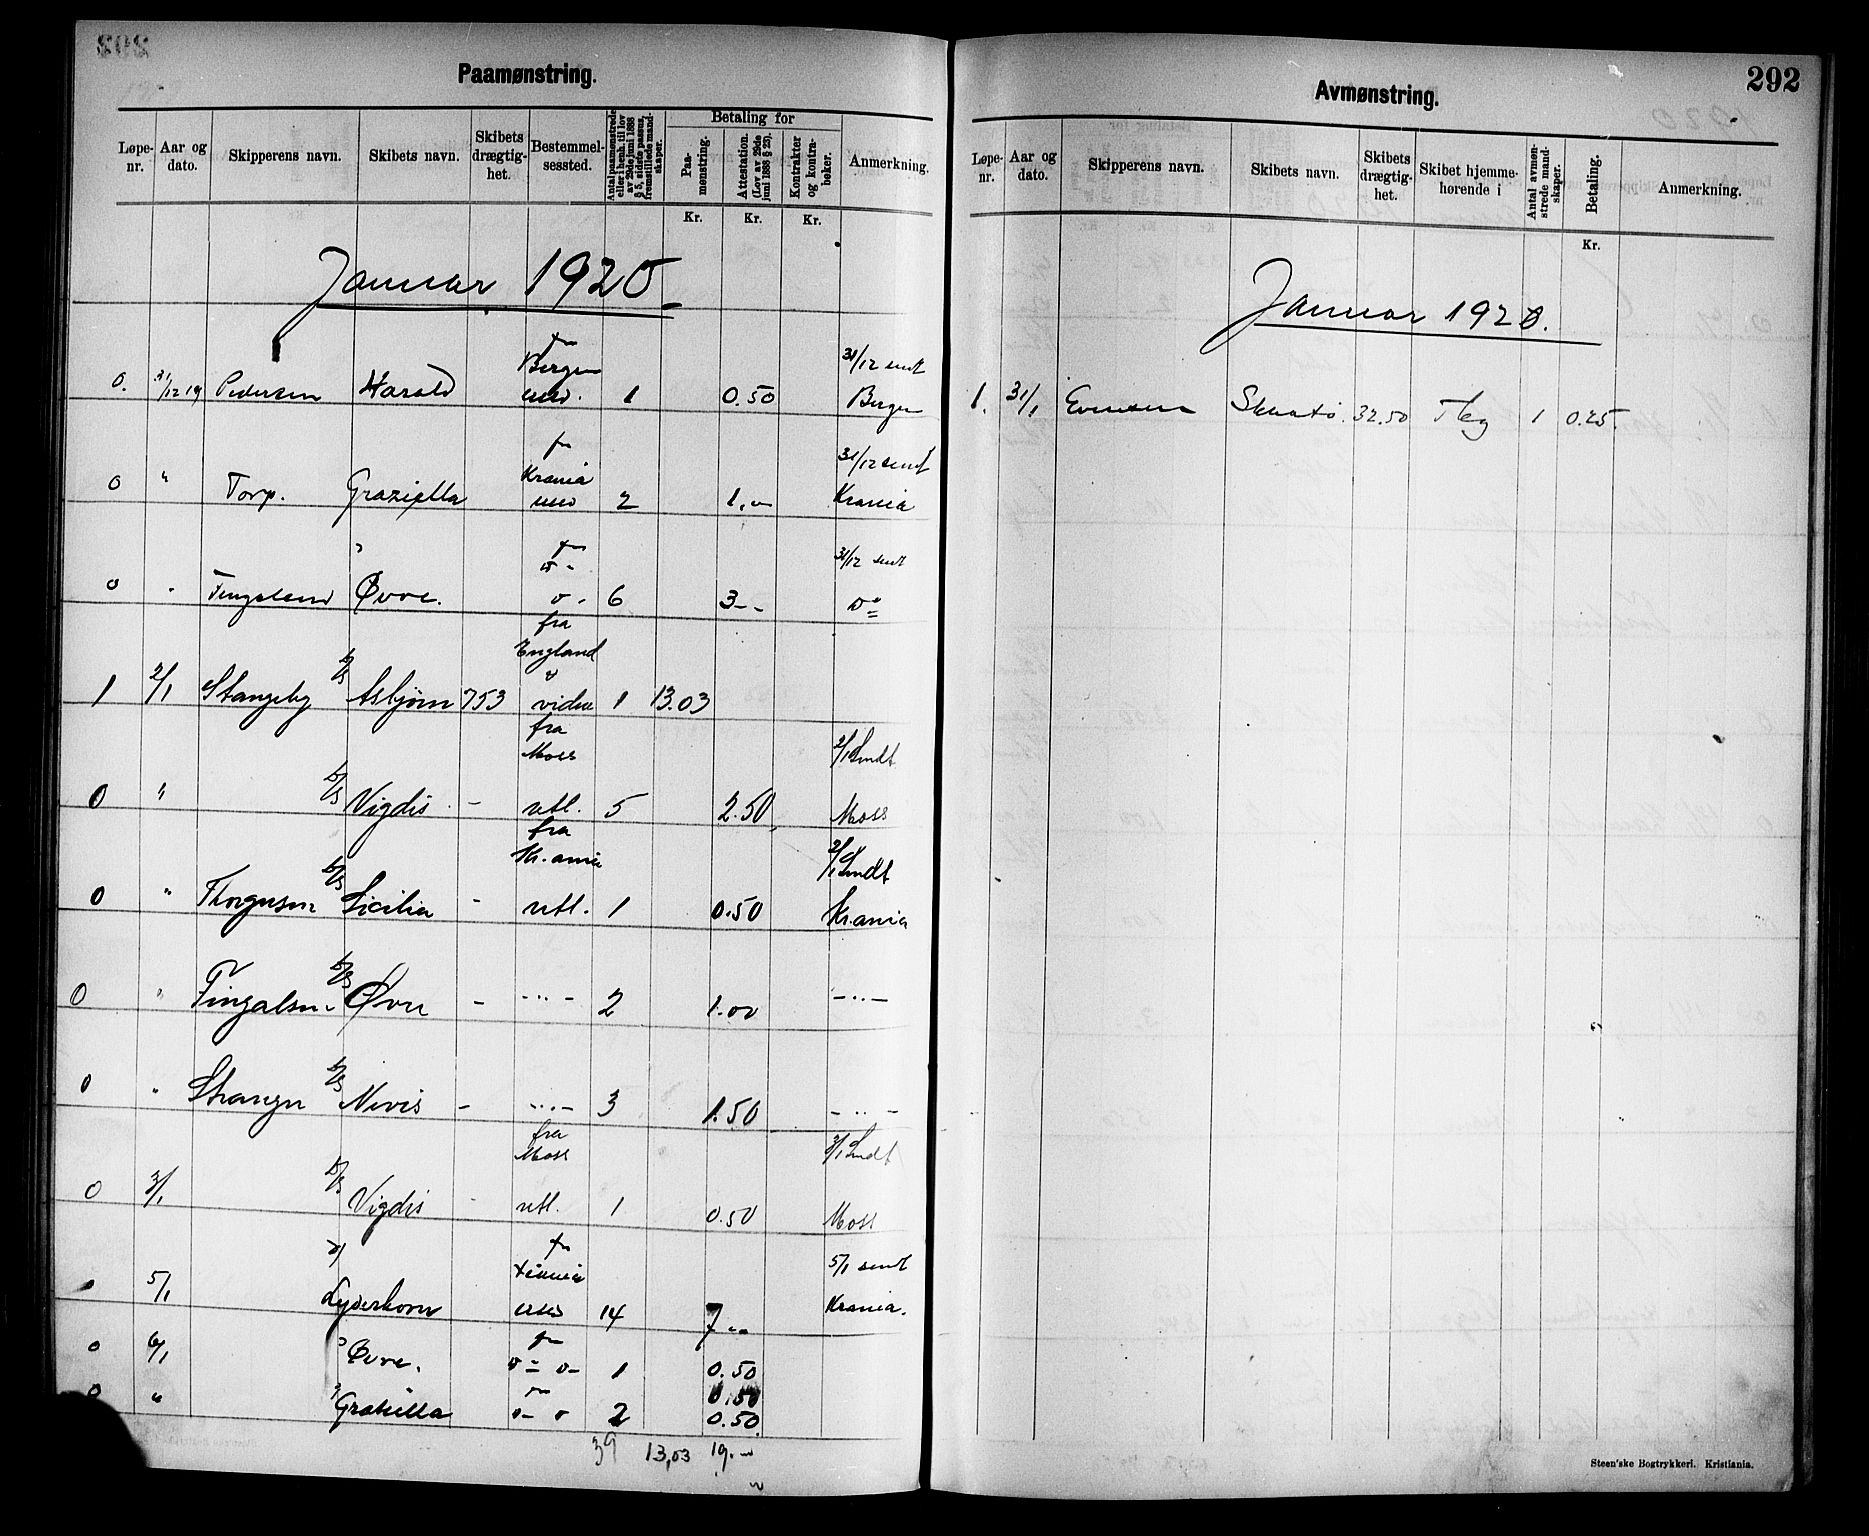 292
Paamønstring.
Løpe-nr. Aar og dato. Skipperens navn. Skibets navn. Skibets drægtig-het. Bestemmel-sessted. Antal paamønstrede eller i henh. til lov av 29de juni 1888 § 5, sidste passus, fremstillede mand-skaper. Betaling for Paa-mønstring. Attestation. (Lov av 29de juni 1888 § 23). Kontrakter og kontra-bøker. Anmerkning.
Kr. Kr. Kr.
Januar 1920
fra Bergen 31/12 sendt
0. 31/12 19 Pedersen Harald 1 0.50 Bergen
fra Krania 31/12 sendt
0 " Torp. Graziella 2 1.- Krania
fra 31/12 sendt
0 " Øvre. 6 3-- do
fra England
1 2/1 Stangeby D/S Asbjørn 753 & videre 1 13.03
fra Moss 2/1 Sendt
0 " D/S Vigdis - utl. 5 2.50 Moss
fra Kr.ania 2/1 Sendt
0 " D/S Sicilia - utl. 1 0.50 Kr.ania
0 " D/S Øvre - -"- 2 1.00 -"-
0 " D/S Nevis - -"- 3 1.50 -"-
fra Moss 3/1 Sendt
0 3/1 D/S Vigdis - utl. 1 0.50 Moss
fra 5/1 sendt
0 5/1 Lyderhorn 14 7-- Krania.
0 6/1 Øvre. fra 1 0.50
0 " Graziella 2 0.50
0.50
39 13,03 19.-
Avmønstring.
292
Løpe-nr. Aar og dato. Skipperens navn. Skibets navn. Skibets drægtig-het. Skibet hjemme-hørende i Antal avmøn-strede mand-skaper. Betaling. Anmerkning.
Kr.
Januar 1920.
1. 31/1 Evensen Skaatø. 32.50 Tbg 1 0.25.
Steen'ske Bogtrykkeri. Kristiania.